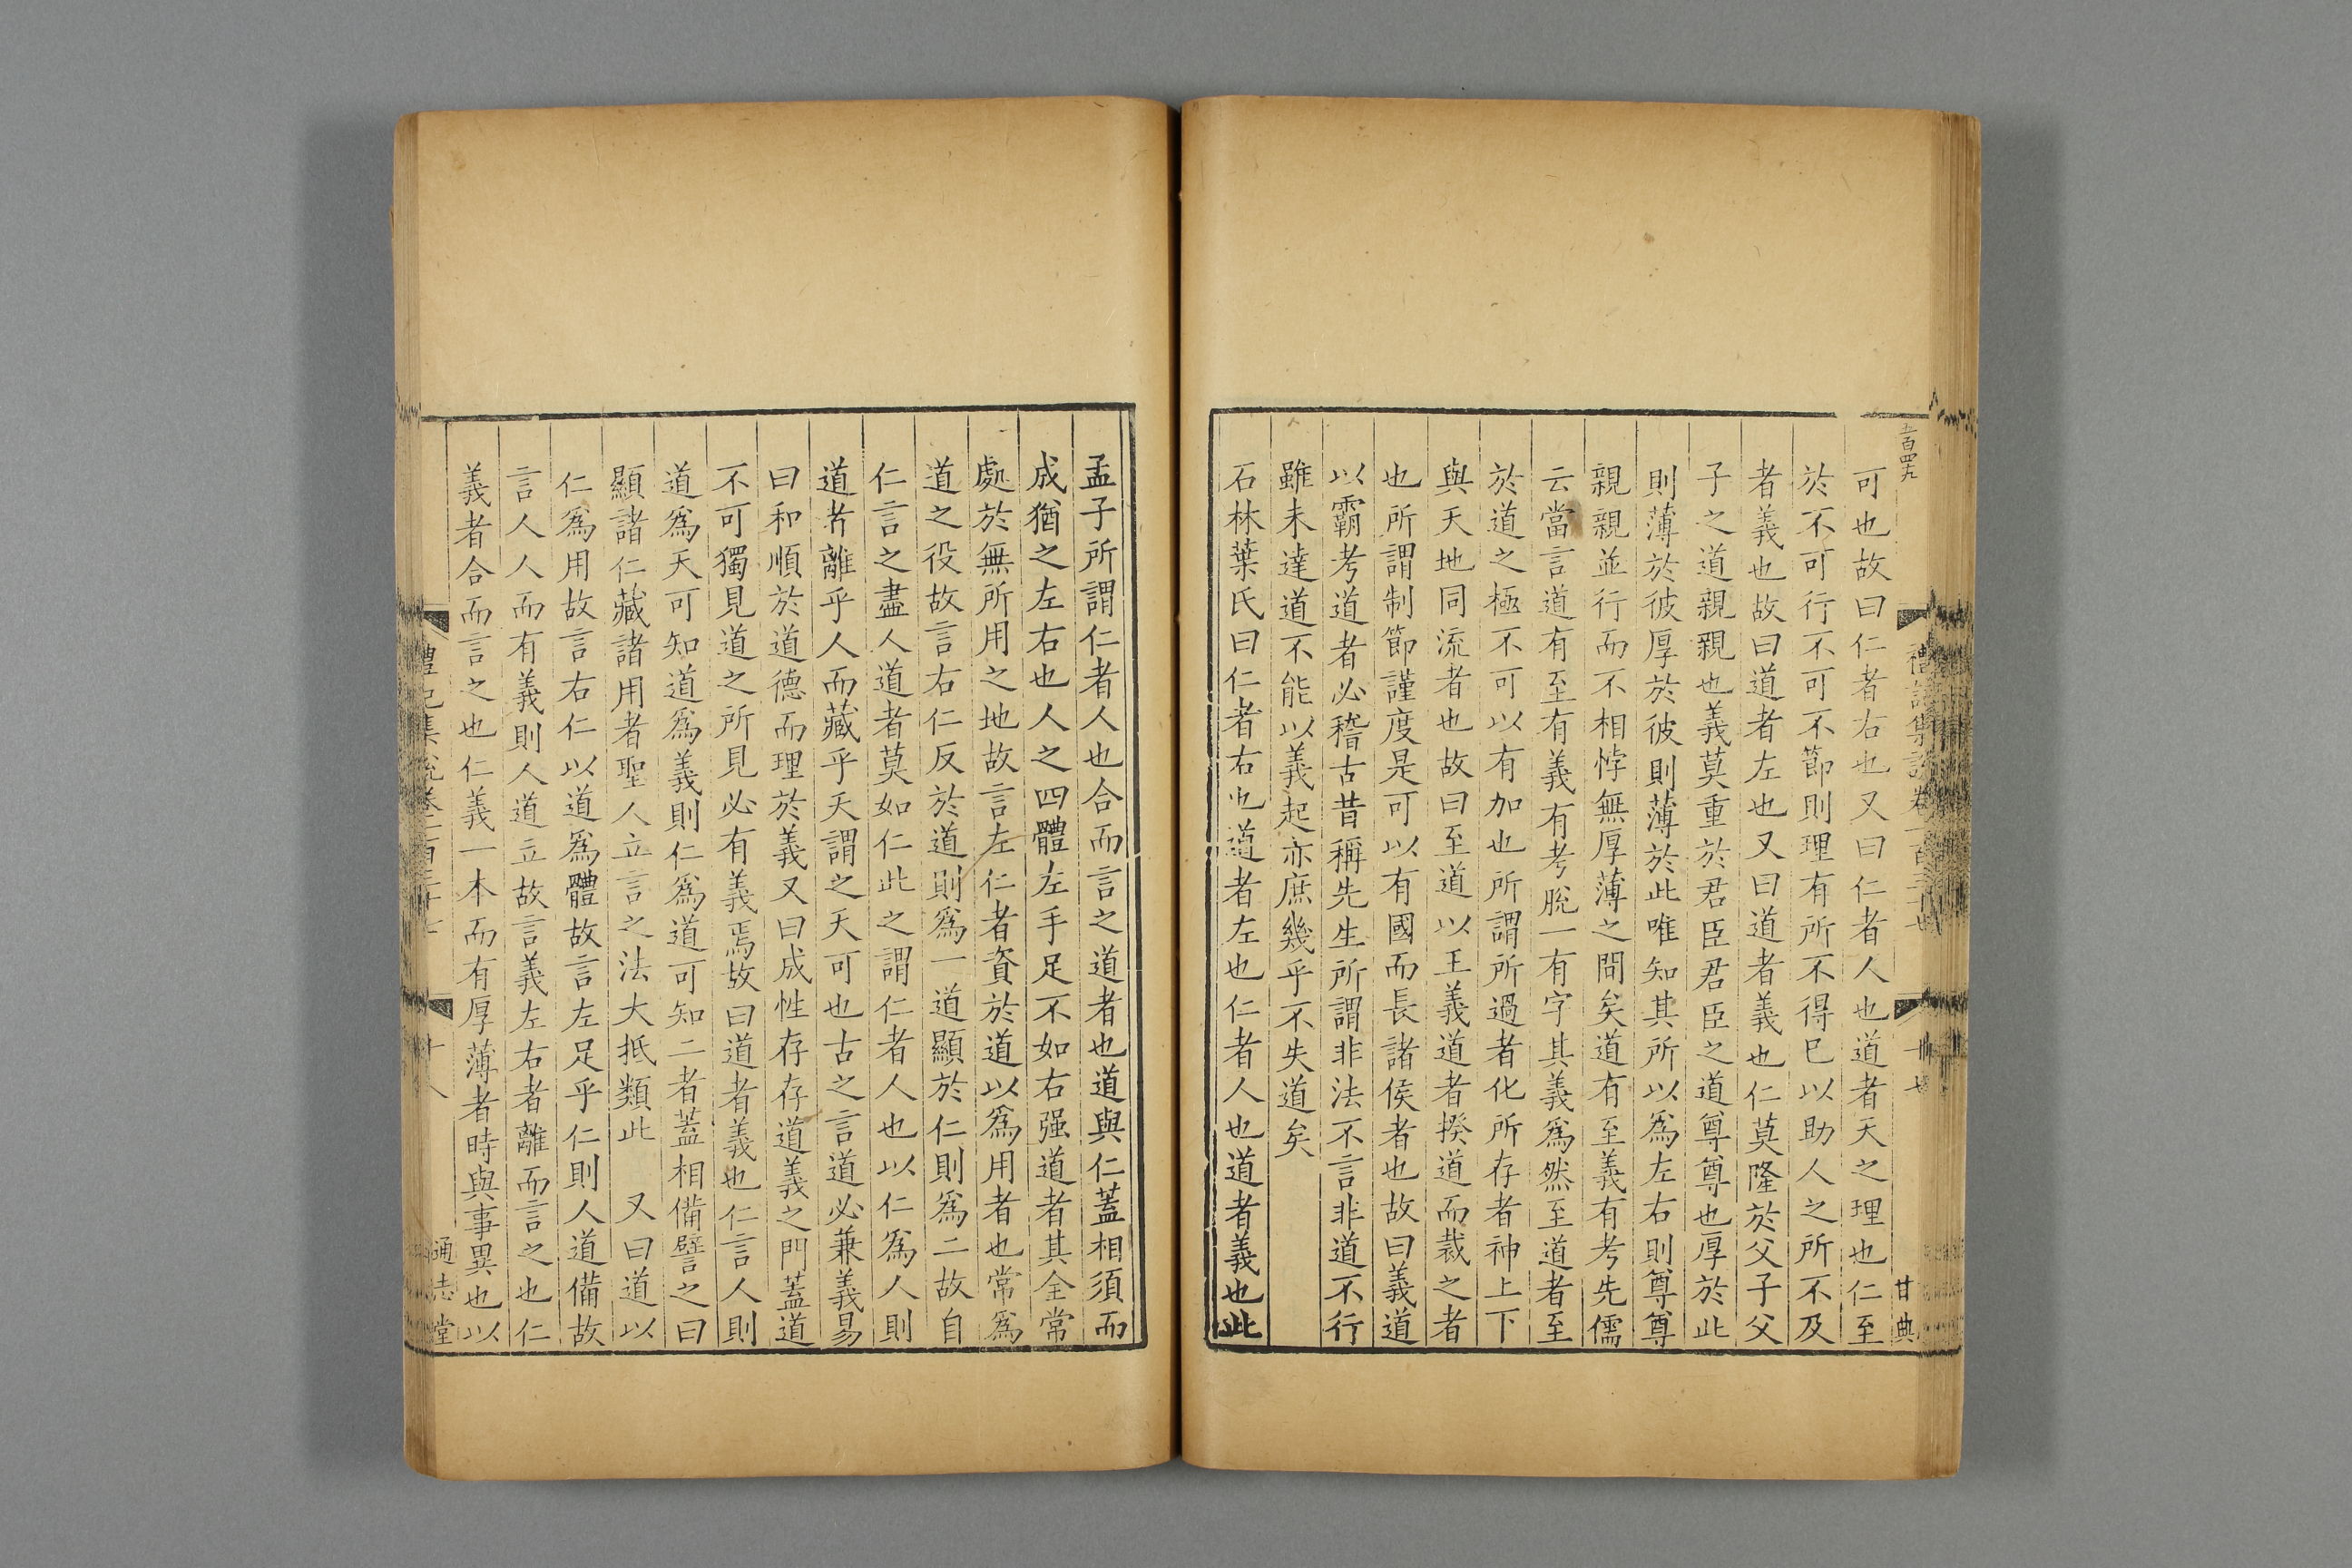 五百四九
禮記集說卷一百三十七
十七
甘典
可也故曰仁者右也又曰仁者人也道者天之理也仁至
於不可行不可不節則理有所不得巳以助人之所不及
者義也故曰道者左也又曰道者義也仁莫隆於父子父
子之道親親也義莫重於君臣君臣之道尊尊也厚於此
則薄於彼厚於彼則薄於此唯知其所以爲左右則尊尊
親親並行而不相悖無厚薄之間矣道有至義有考先儒
云當言道有至有義有考脫一有字其義爲然至道者至
於道之極不可以有加也所謂所過者化所存者神上下
與天地同流者也故曰至道以王義道者揆道而裁之者
也所謂制節謹度是可以有國而長諸侯者也故曰義道
以霸考道者必稽古昔稱先生所謂非法不言非道不行
雖未達道不能以義起亦庶幾乎不失道矣
石林葉氏曰仁者右也道者左也仁者人也道者義也此
孟子所謂仁者人也合而言之道者也道與仁蓋相須而
成猶之左右也人之四體左手足不如右强道者其全常
處於無所用之地故言左仁者資於道以爲用者也常爲
道之役故言右仁反於道則爲一道顯於仁則爲二故自
仁言之盡人道者莫如仁此之謂仁者人也以仁爲人則
道者離乎人而藏乎天謂之天可也古之言道必兼義易
曰和順於道德而理於義又曰成性存存道義之門蓋道
不可獨見道之所見必有義焉故曰道者義也仁言人則
道爲天可知道爲義則仁爲道可知二者蓋相備譬之曰
顯諸仁藏諸用者聖人立言之法大抵類此　又曰道以
仁爲用故言右仁以道爲體故言左足乎仁則人道備故
言人人而有義則人道立故言義左右者離而言之也仁
義者合而言之也仁義一本而有厚薄者時與事異也以
禮記集說卷一百三十七
十八
通志堂